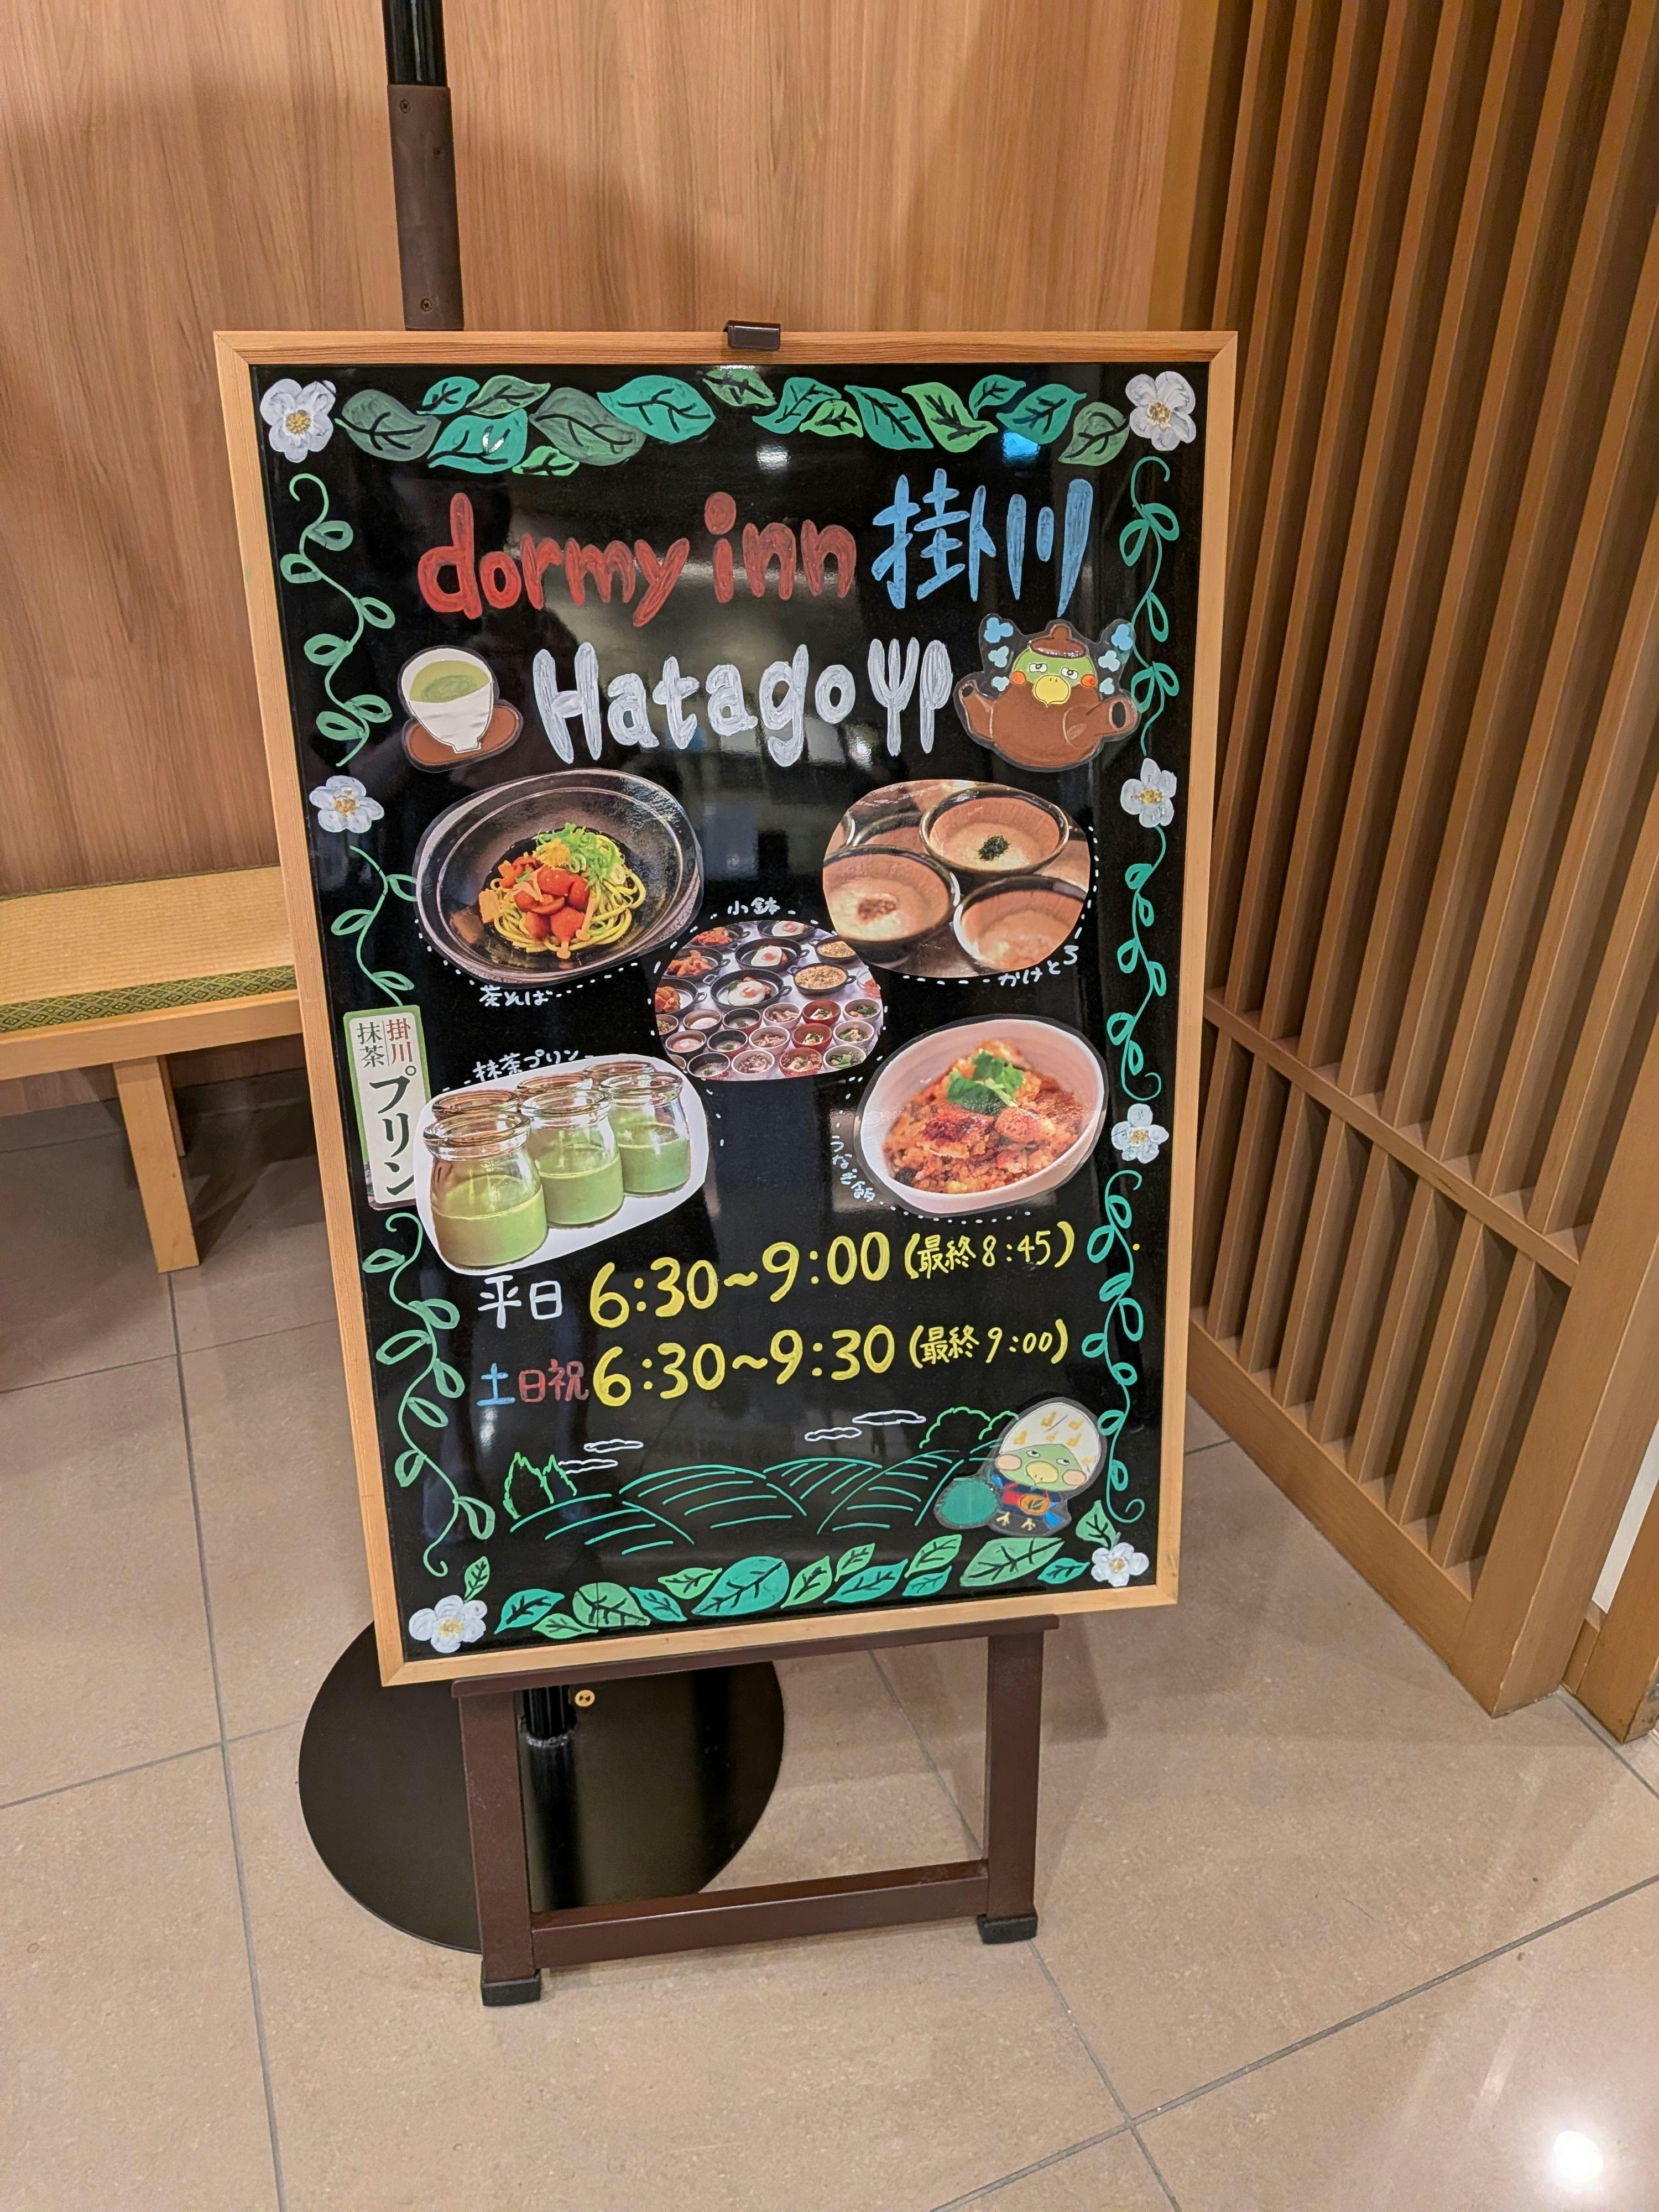 dormy inn 掛川
Hatago
小鉢
茶そば
かけとろ
抹茶プリン
掛川
抹茶
プリン
うなぎ飯
平日 6:30~9:00 (最終 8:45)
土日祝 6:30~9:30 (最終 9:00)